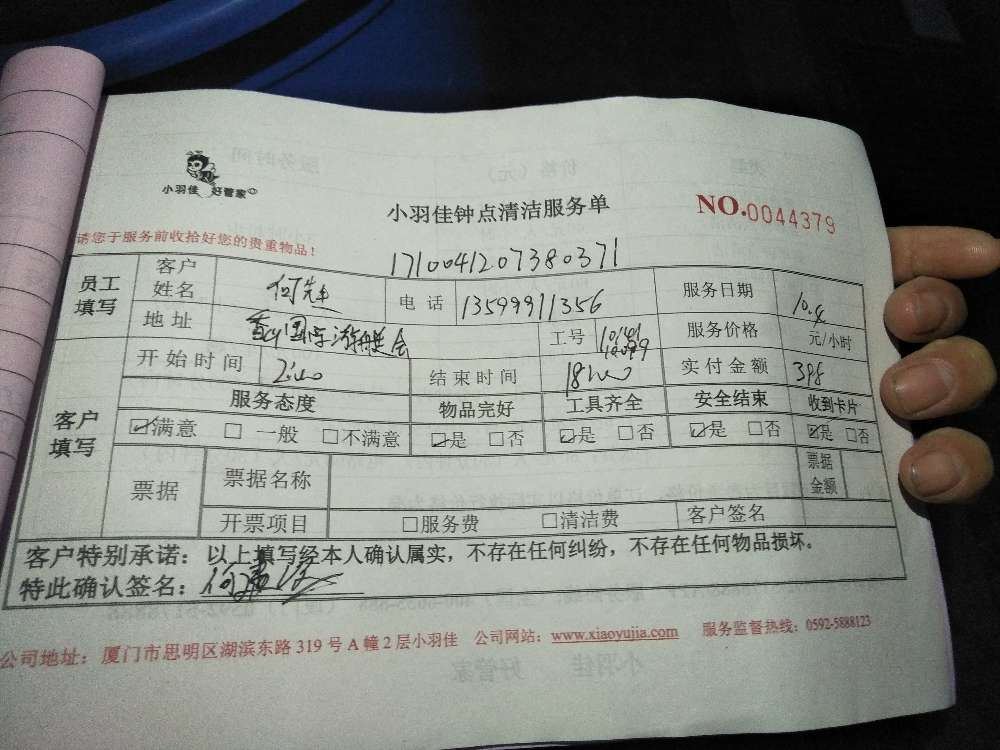 小羽佳 好管家
小羽佳钟点清洁服务单
NO.0044379
请您于服务前收拾好您的贵重物品!
1710041207380371
员工填写 客户姓名 何先生 电话 13599911356 服务日期 10.4
地址 国际游艇会 工号 服务价格 元/小时
客户填写 开始时间 结束时间 18:00 实付金额 398
服务态度 物品完好 工具齐全 安全结束 收到卡片
☑满意 □一般 □不满意 ☑是 □否 ☑是 □否 ☑是 □否 ☑是 □否
票据 票据名称 票据金额
开票项目 □服务费 □清洁费 客户签名
客户特别承诺：以上填写经本人确认属实，不存在任何纠纷，不存在任何物品损坏。
特此确认签名：何
公司地址：厦门市思明区湖滨东路319号A幢2层小羽佳 公司网站：www.xiaoyujia.com 服务监督热线：0592-5888123